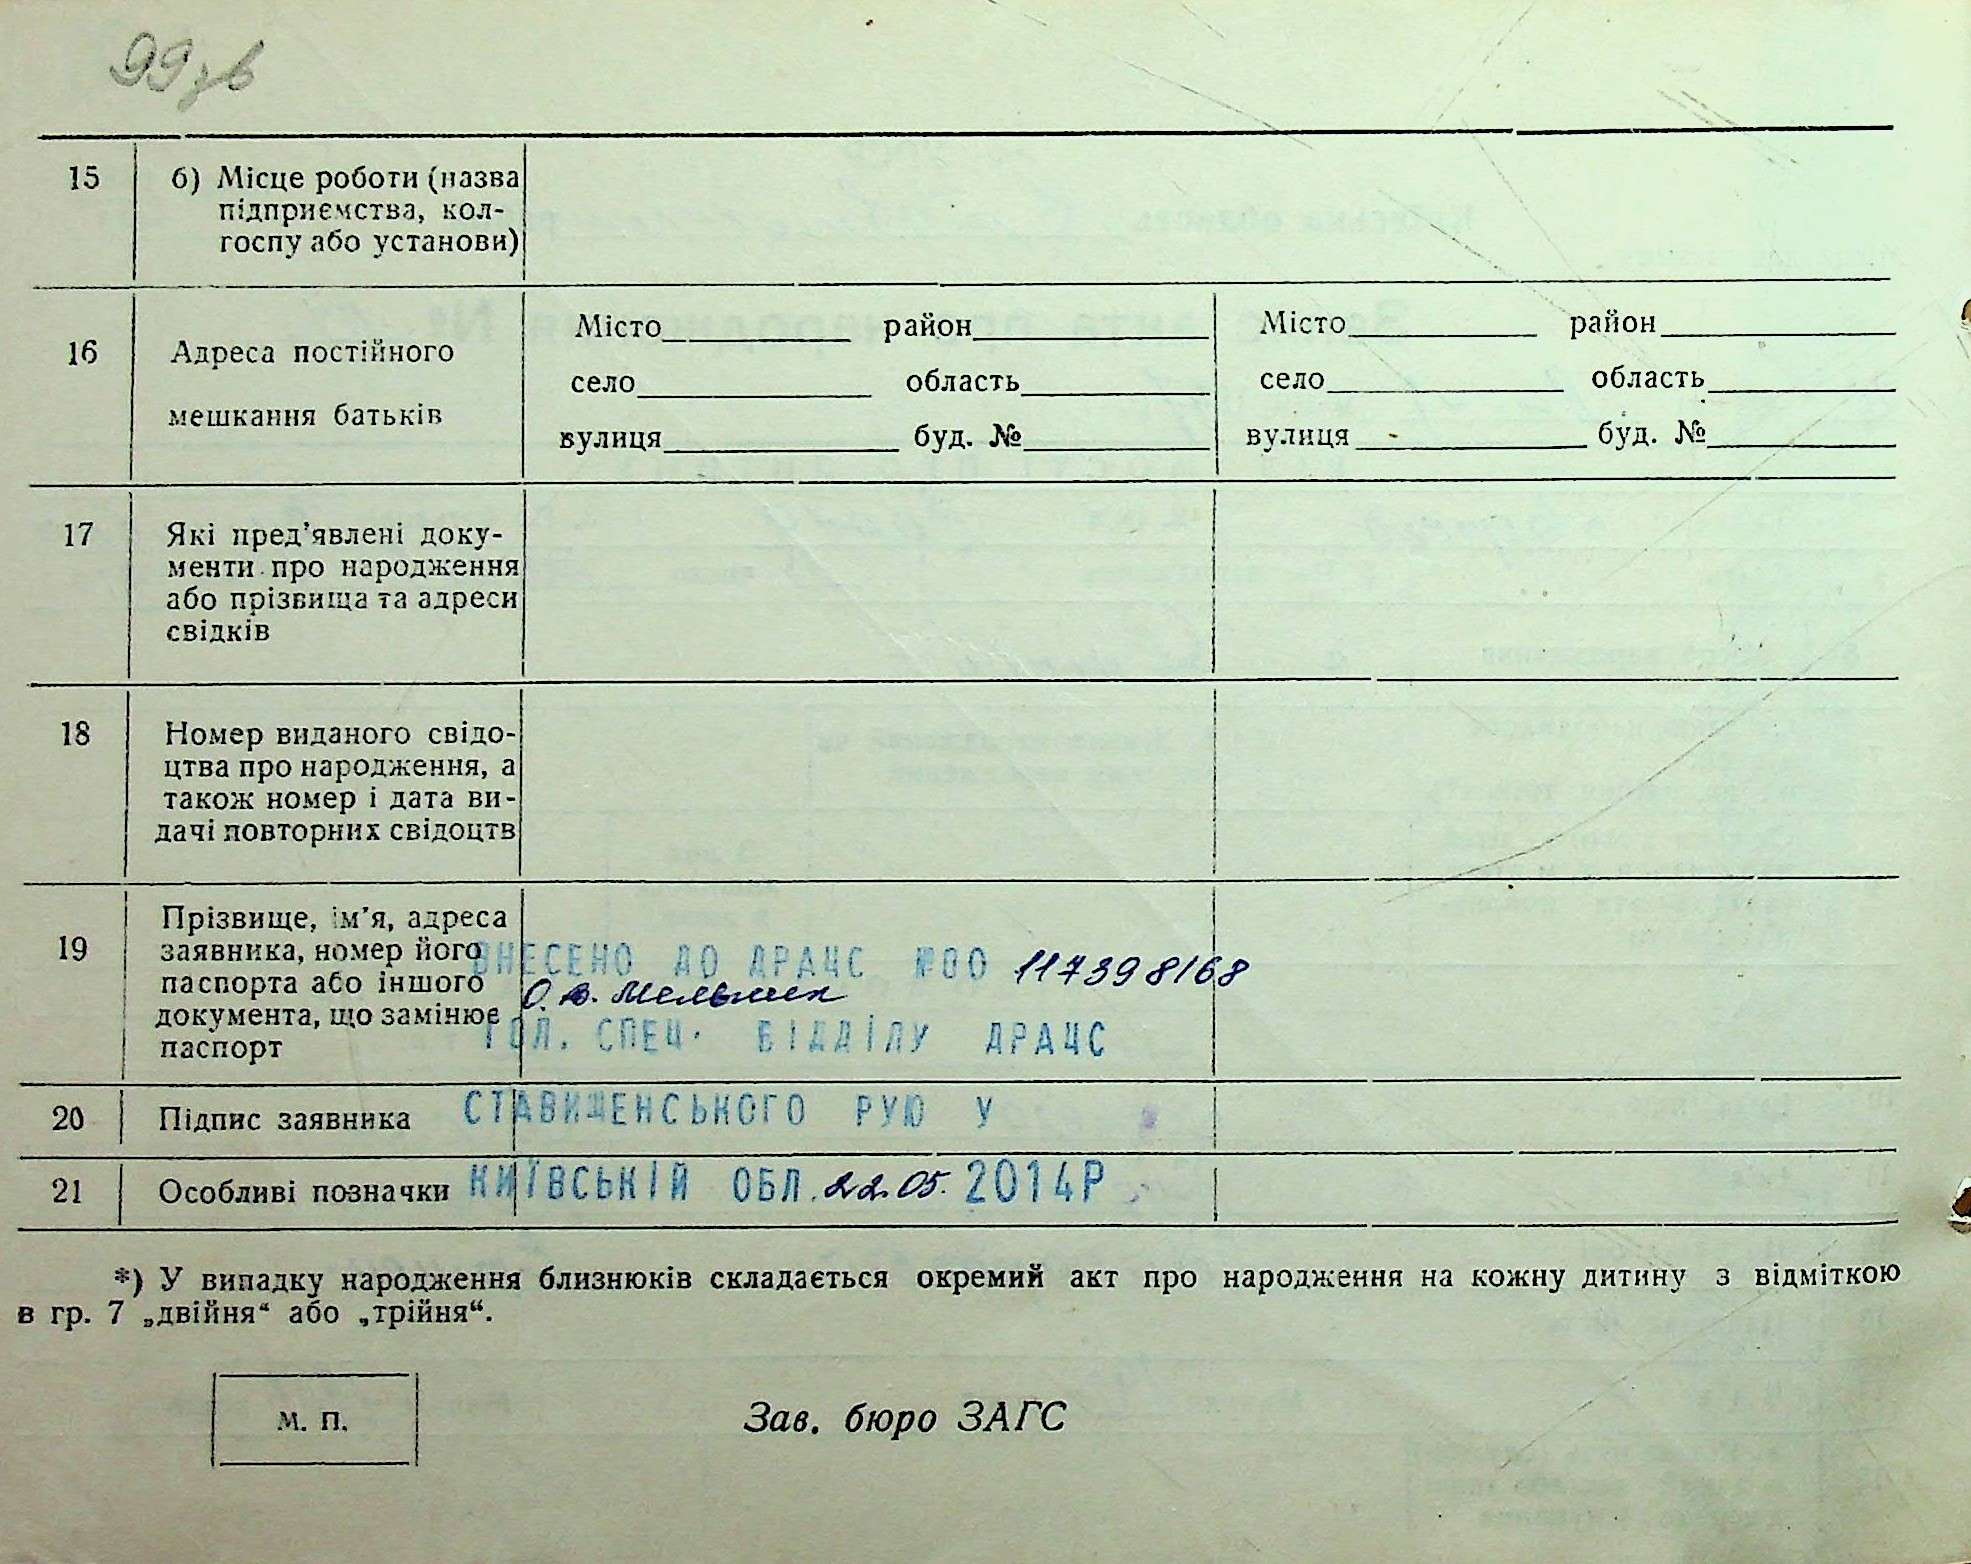 99зв
15
б) Місце роботи (назва
підприємства, кол-
госпу або установи)
16
Адреса постійного
мешкання батьків
Місто район
село область
вулиця буд. №
Місто район
село область
вулиця буд. №
17
Які пред’явлені доку-
менти про народження
або прізвища та адреси
свідків
18
Номер виданого свідо-
цтва про народження, а
також номер і дата ви-
дачі повторних свідоцтв
19
Прізвище, ім’я, адреса
заявника, номер його
паспорта або іншого
документа, що замінює
паспорт
ВНЕСЕНО ДО ДРАЦС №00 117398168
О.В. Мельник
ГОЛ. СПЕЦ. ВІДДІЛУ ДРАЦС
20
Підпис заявника
СТАВИЩЕНСЬКОГО РУЮ У
21
Особливі позначки
КИЇВСЬКІЙ ОБЛ. 22.05. 2014Р
*) У випадку народження близнюків складається окремий акт про народження на кожну дитину з відміткою
в гр. 7 „двійня“ або „трійня“.
М. П.
Зав. бюро ЗАГС